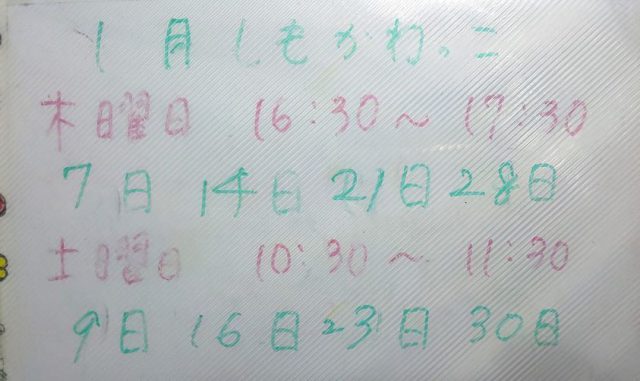 1月しもかわっこ
木曜日 16:30～17:30
7日 14日 21日 28日
土曜日 10:30～11:30
9日 16日 23日 30日